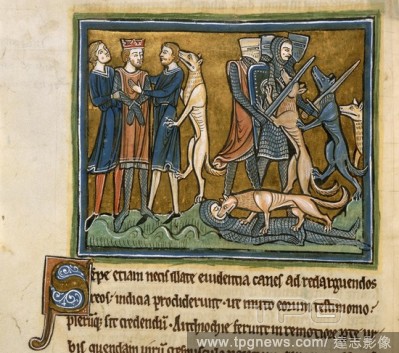 Sepe etiam necis illate euidentia canes ad redarguendos
reos indicia prodiderunt ut muto eorum testimonio
pleriq; sit creditum. Antiochie ferunt in remotiore parte ur
bis quendam uirum
www.tpgnews.com 達志影像